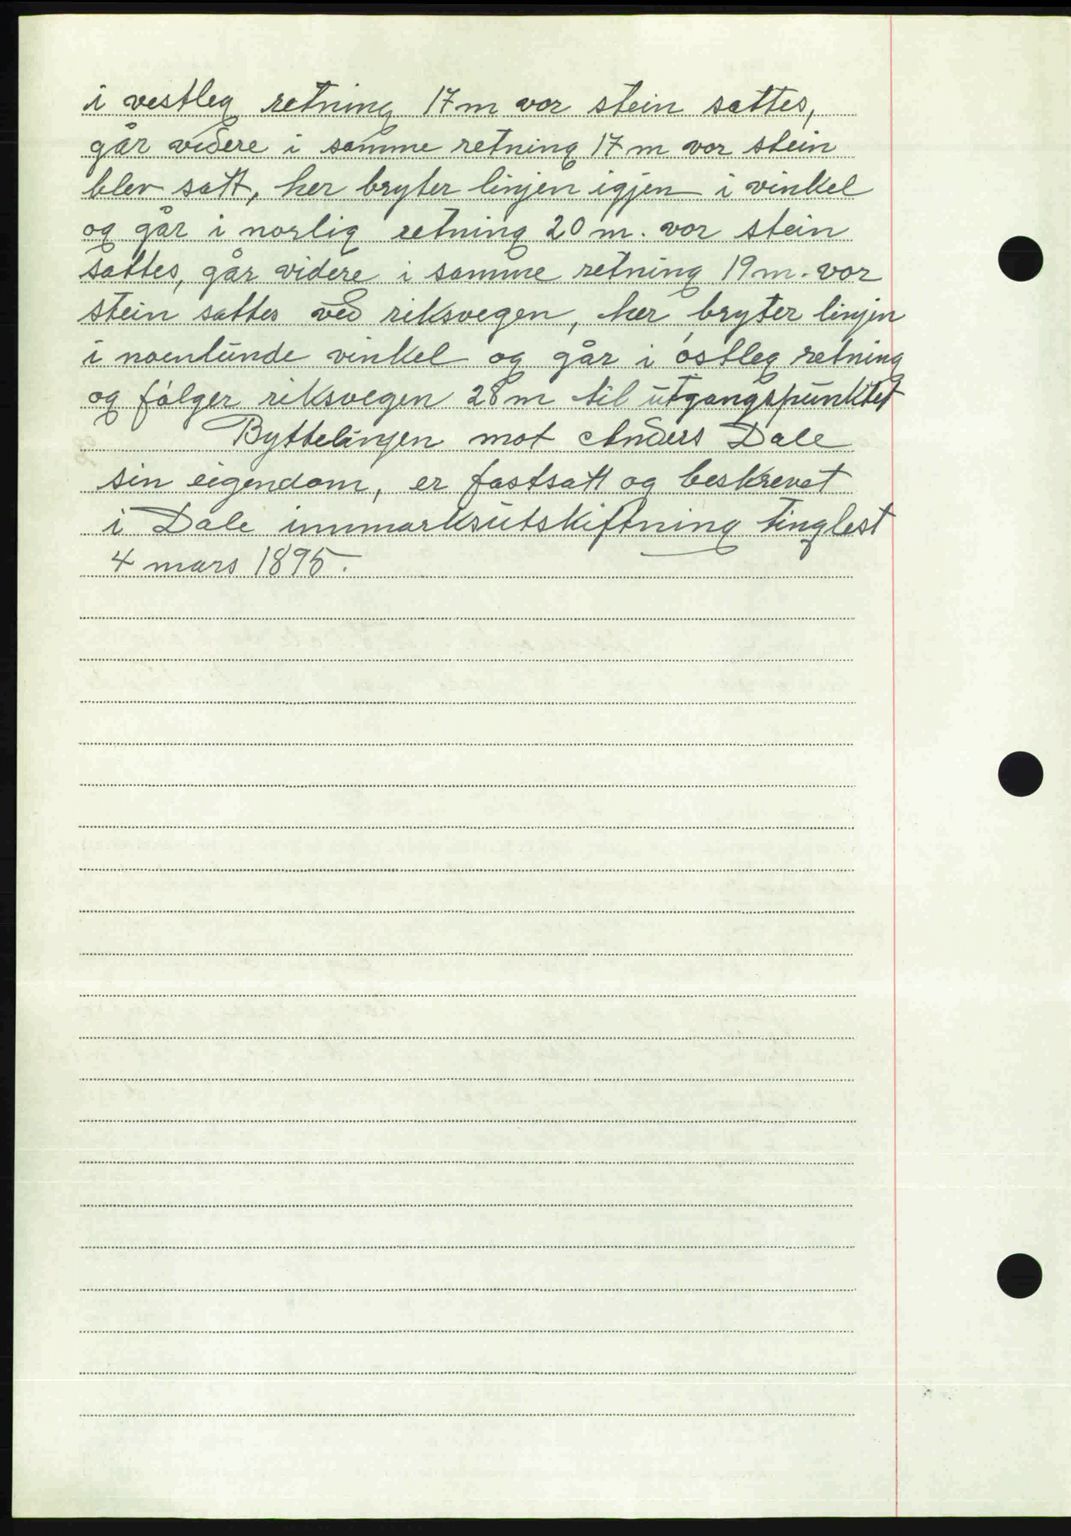 i vestleg retning 17 m vor stein sattes,
går videre i samme retning 17 m vor stein
blev satt, her bryter linjen igjen i vinkel
og går i norlig retning 20 m. vor stein
sattes, går videre i samme retning 19 m. vor
stein sattes ved riksvegen, her bryter linjen
i noenlunde vinkel og går i östleg retning
og fölger riksvegen 28 m til utgangspunktet
Byttelinjen mot Anders Dale
sin eigendom, er fastsatt og beskrevet
i Dale innmarksutskiftning tinglest
4 mars 1895.